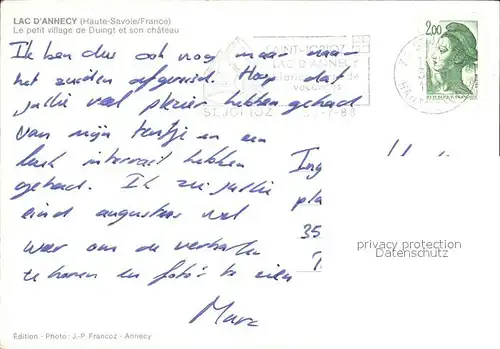 LAC D'ANNECY (Haute-Savoie/France)
Le petit village de Duingt et son château
Ik ben dus ook nog maar naar
het zuiden afgereisd. Hoop dat
jullie veel plezier hebben gehad
van mijn tentje en een
leuk interrail hebben
gehad. Ik zie jullie
eind augustus wel
weer om de verhalen
te horen en foto's te zien
Marc
SAINT-JORIOZ
LAC D'ANNECY
ST JORIOZ
-7-88
2,00
Ing
pla
35
privacy protection
Datenschutz
Édition - Photo : J.-P. Francoz - Annecy